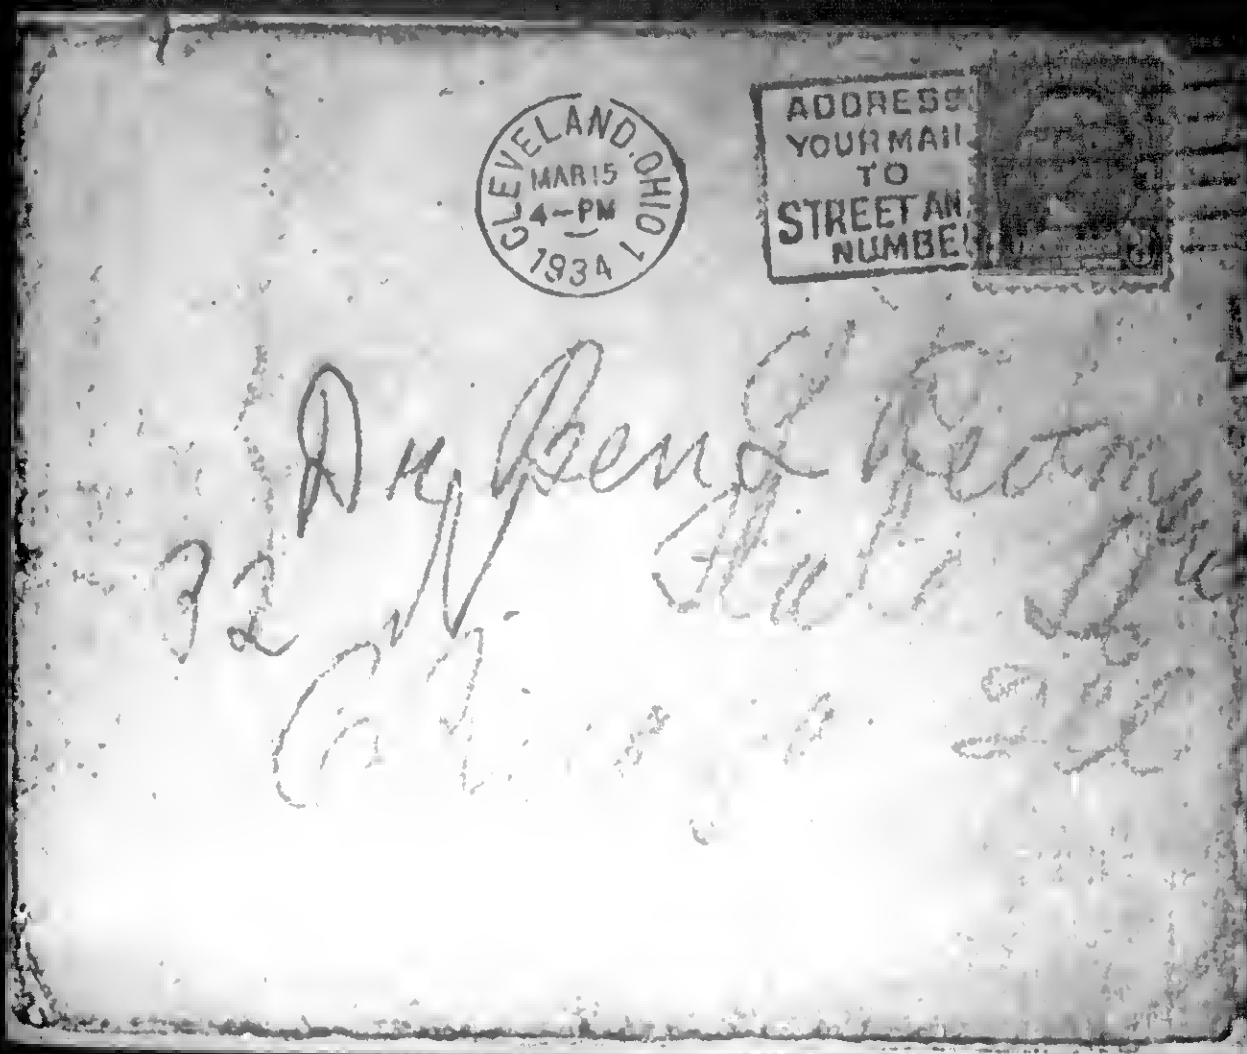 CLEVELAND, OHIO 1
MAR 15
4-PM
1934
ADDRESS
YOUR MAIL
TO
STREET AN
NUMBE
3
Dr Ben L Reitman
32 N State
Chicago Ill